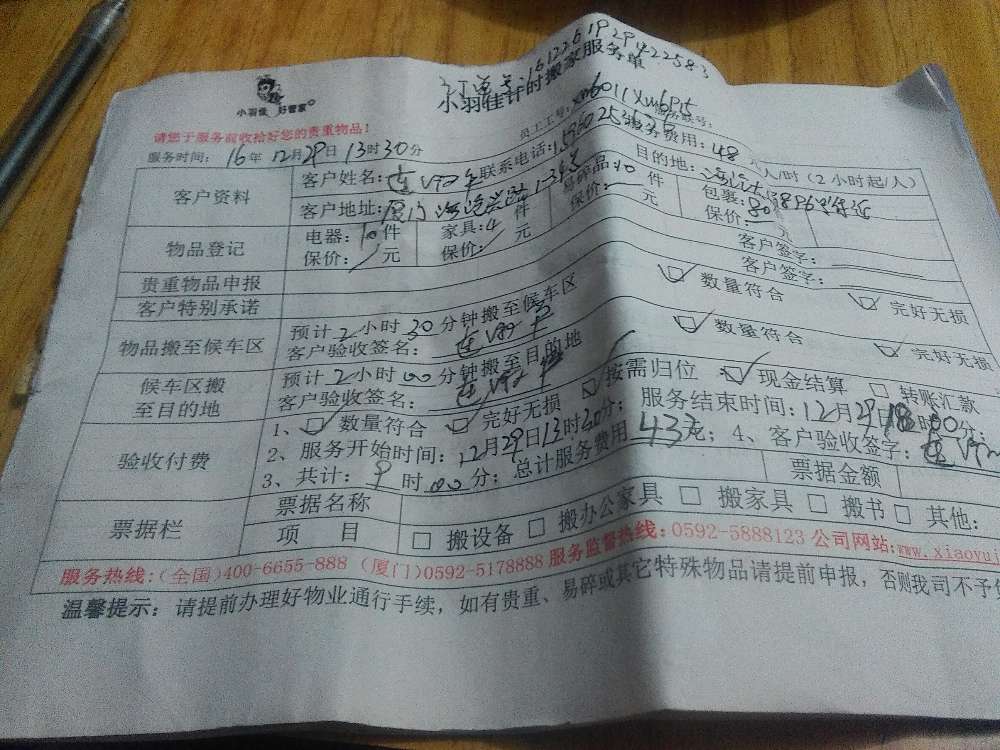 小羽佳 好管家
小羽佳计时搬家服务单
请您于服务前收拾好您的贵重物品！
员工工号：xm6011xm6915
服务时间：16年12月29日13时30分
联系电话：
服务费用：48元/人/时（2小时起/人）
客户资料
客户姓名：
客户地址：厦门
目的地：
物品登记
电器：10件
保价：／元
家具：4件
保价：／元
易碎品：10件
保价：／元
包裹：80
保价：
客户签字：
贵重物品申报
客户签字：
客户特别承诺
物品搬至候车区
预计2小时30分钟搬至候车区
数量符合
完好无损
客户验收签名：
候车区搬至目的地
预计2小时00分钟搬至目的地
数量符合
完好无损
客户验收签名：
验收付费
1、数量符合 完好无损 按需归位 现金结算 转账汇款
2、服务开始时间：12月29日13时30分；服务结束时间：12月29日18时00分；
3、共计：9时00分；总计服务费用432元；4、客户验收签字：
票据栏
票据名称
票据金额
项 目
搬设备 搬办公家具 搬家具 搬书 其他：
服务热线：（全国）400-6655-888 （厦门）0592-5178888 服务监督热线：0592-5888123 公司网站：www.xiaoyuj
温馨提示：请提前办理好物业通行手续，如有贵重、易碎或其它特殊物品请提前申报，否则我司不予